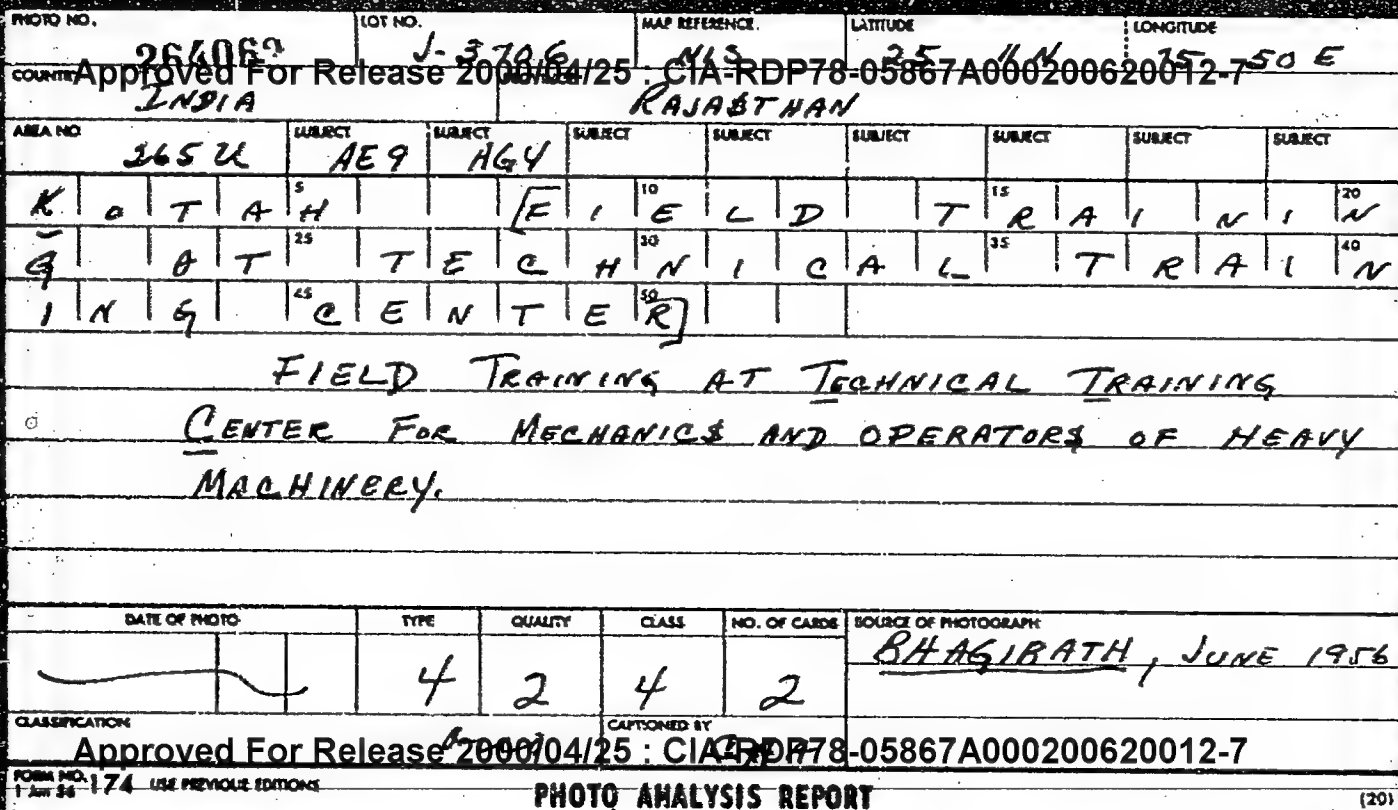 PHOTO NO. LOT NO. MAP REFERENCE. LATITUDE LONGITUDE
264062 J-3706 NIS 25 11 N 75 50 E
COUNTRY Approved For Release 2000/04/25 : CIA-RDP78-05867A000200620012-7
INDIA RAJASTHAN
AREA NO. SUBJECT SUBJECT SUBJECT SUBJECT SUBJECT SUBJECT SUBJECT SUBJECT
265 U AE9 AG4
5 10 15 20
KOTAH [FIELD TRAININ
25 30 35 40
G AT TECHNICAL TRAIN
45 50
ING CENTER]
FIELD TRAINING AT TECHNICAL TRAINING
CENTER FOR MECHANICS AND OPERATORS OF HEAVY
MACHINERY.
DATE OF PHOTO TYPE QUALITY CLASS NO. OF CARDS SOURCE OF PHOTOGRAPH
4 2 4 2 BHAGIRATH, JUNE 1956
CLASSIFICATION CAPTIONED BY
Approved For Release 2000/04/25 : CIA-RDP78-05867A000200620012-7
FORM NO. 174 USE PREVIOUS EDITIONS
1 Jan 56
PHOTO ANALYSIS REPORT (20)